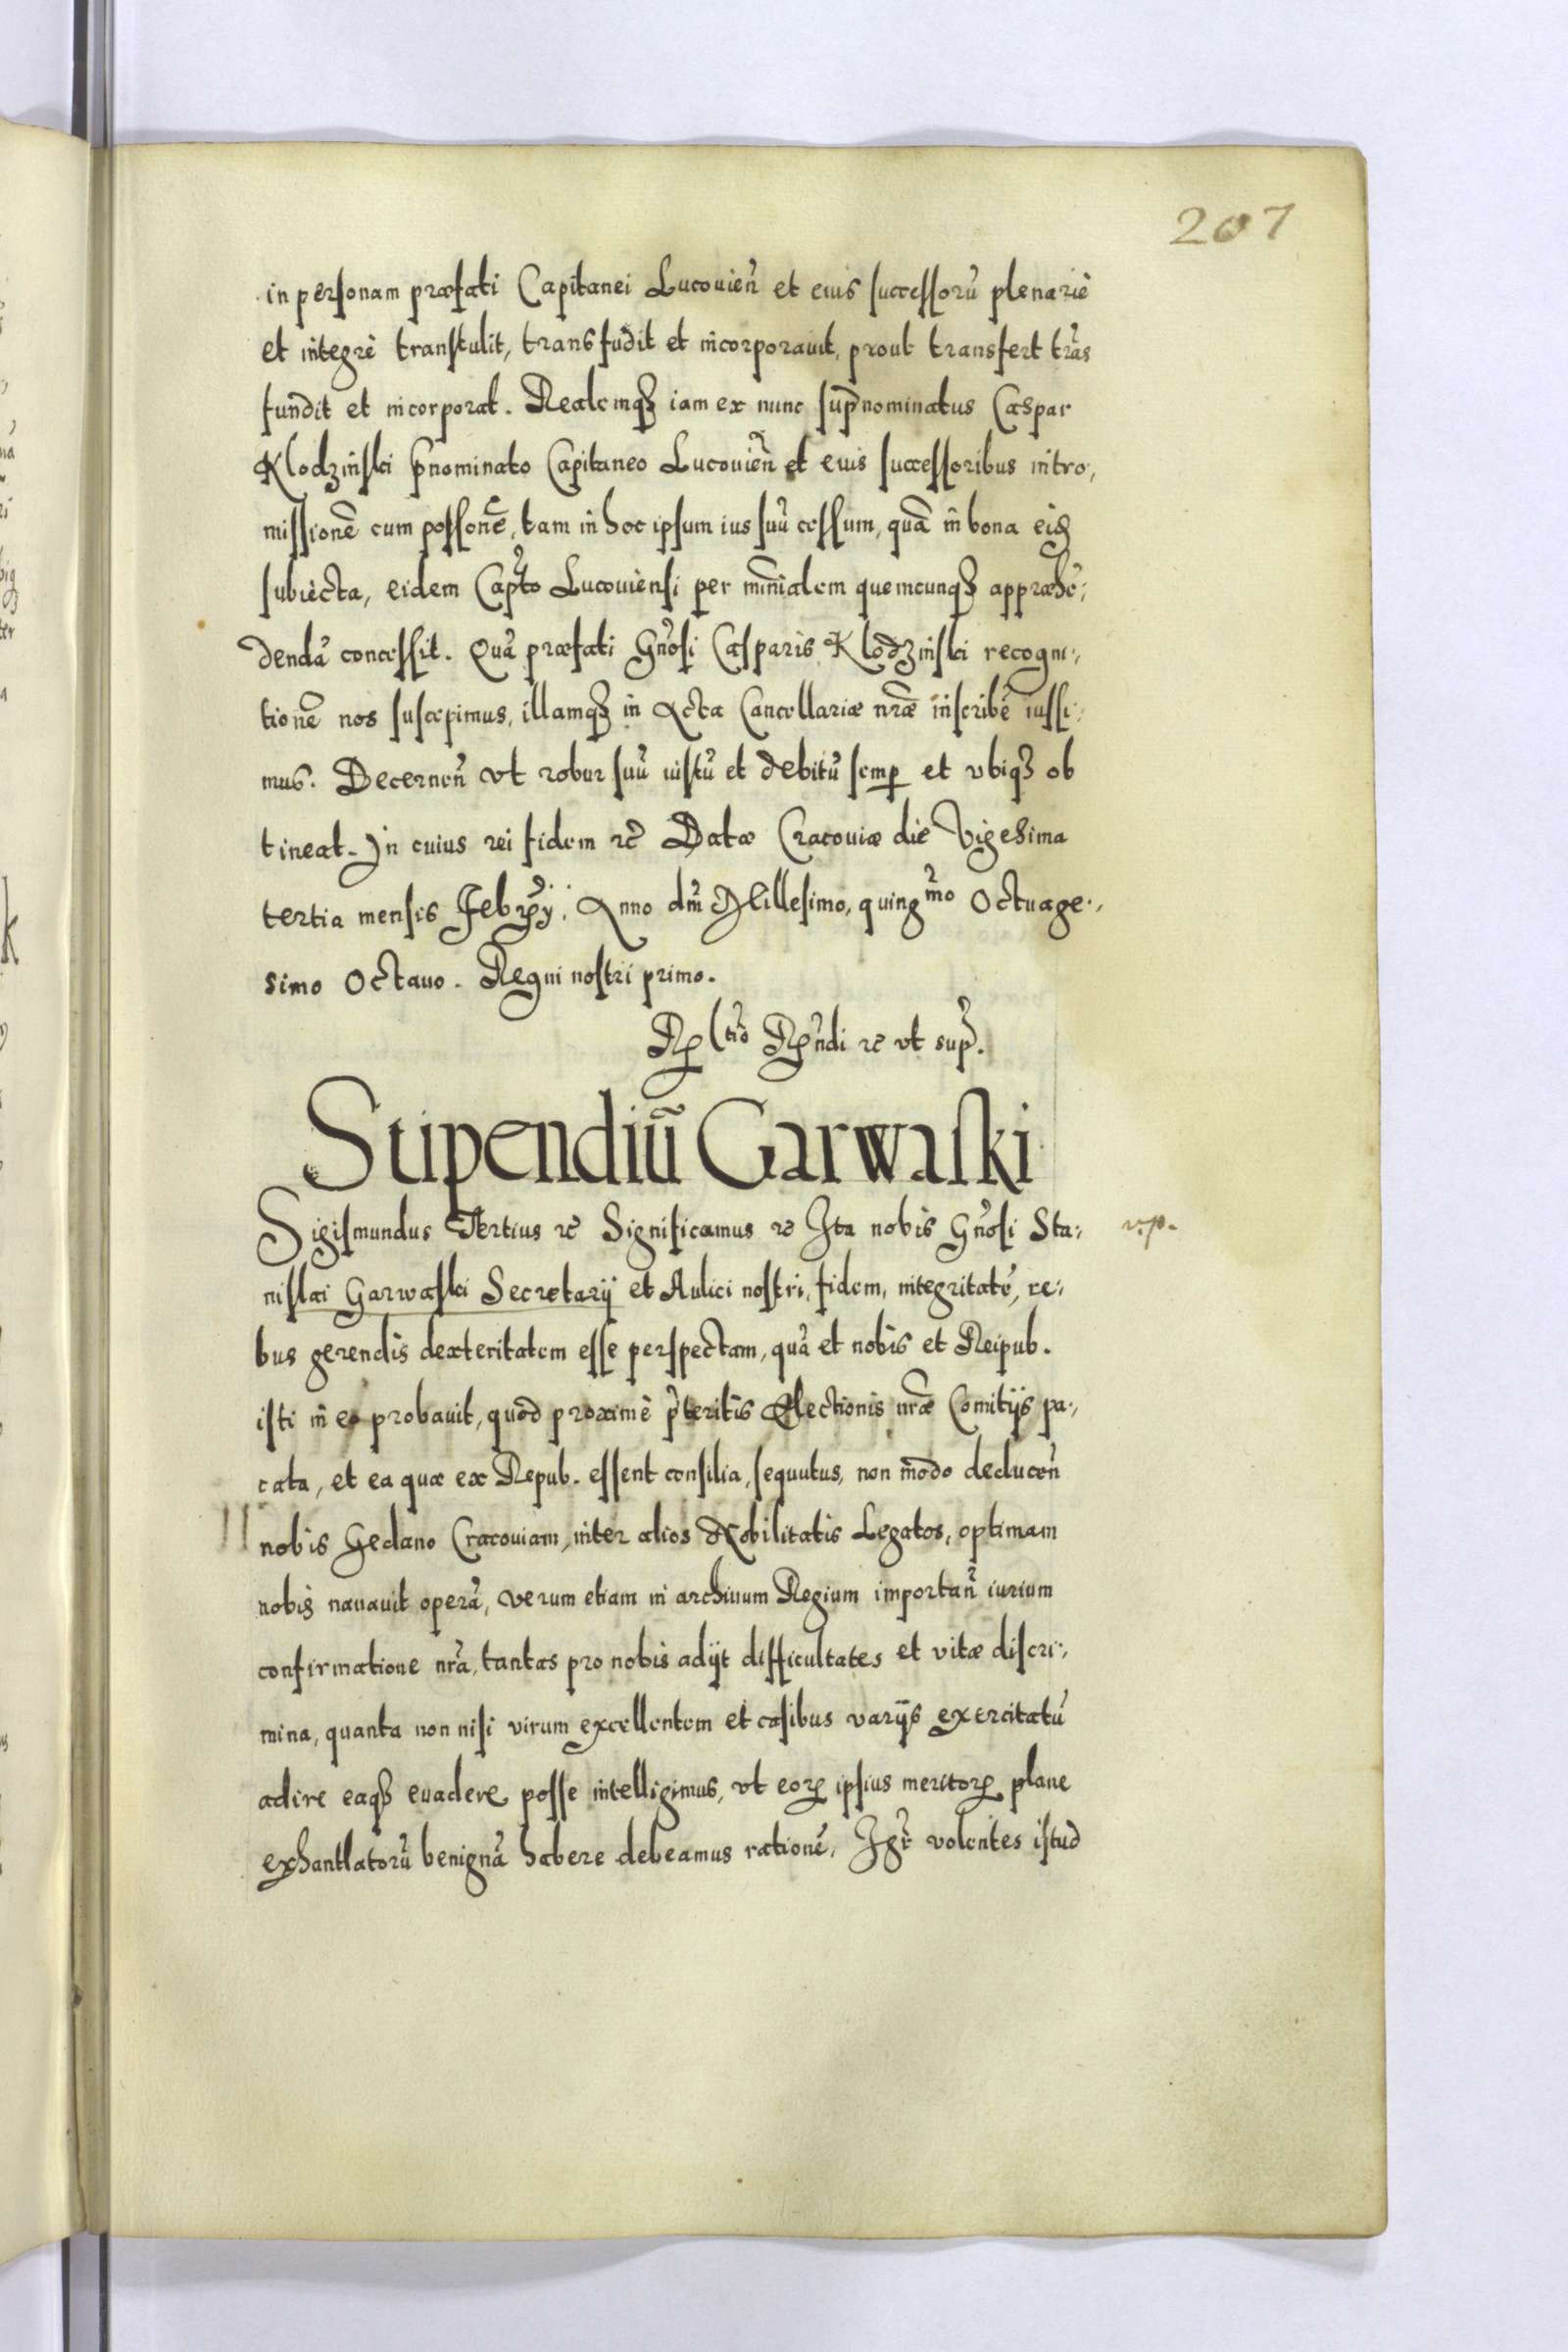 207
in personam præfati Capitanei Lucovieñ et eius successorũ plenariè
et integrè transtulit, transfudit et incorporauit, prout transfert trãs
fundit et incorporat. Realemqȝ iam ex nunc supnominatus Caspar
Klodzinski p̃nominato Capitaneo Lucovieñ et eius successoribus intro,
missionẽ cum possonẽ, tam in hoc ipsum ius suũ cessum, quã in bona eiȝ
subiecta, eidem Capto Lucouiensi per minialem quemcunqȝ appræhẽ,
dendã concessit. Quã præfati Gñosi Casparis Klodzinski recogni,
tionẽ nos suscepimus, illamqȝ in Acta Cancellariæ nr̃æ inscribẽ iussi,
mus. Decerneñ vt robur suũ iustũ et debitũ semp et vbiqȝ ob
tineat. In cuius rei fidem &c Datæ Cracouiæ die Vigesima
tertia mensis Febrȳ. Anno dnĩ Millesimo, quingmo Octuage,
simo Octauo. Regni nostri primo.
&c vt sup.
Stipendiũ Garwaski
Sigismundus Tertius &c Significamus &c Ita nobis Gñosi Sta,
v.p.
nislai Garwaski Secretarij et Aulici nostri, fidem, integritatẽ, re,
bus gerendis dexteritatem esse perspectam, quã et nobis et Reipub.
isti in eo probauit, quod proximè p̃teritis Electionis nr̃æ Comitijs pa,
cata, et ea quæ ex Repub. essent consilia, sequutus, non modo deduceñ
nobis Gedano Cracouiam, inter alios Nobilitatis Legatos, optimam
nobis nauauit operã, verum etiam in archiuum Regium importañ iurium
confirmatione nr̃a, tantas pro nobis adijt difficultates et vitæ discri,
mina, quanta non nisi virum excellentem et casibus varijs exercitatũ
adire eaqȝ euadere posse intelligimus, vt eoꝝ ipsius meritoꝝ plane
exhantlatorũ benignã habere debeamus rationẽ, Igr̃ volentes istud